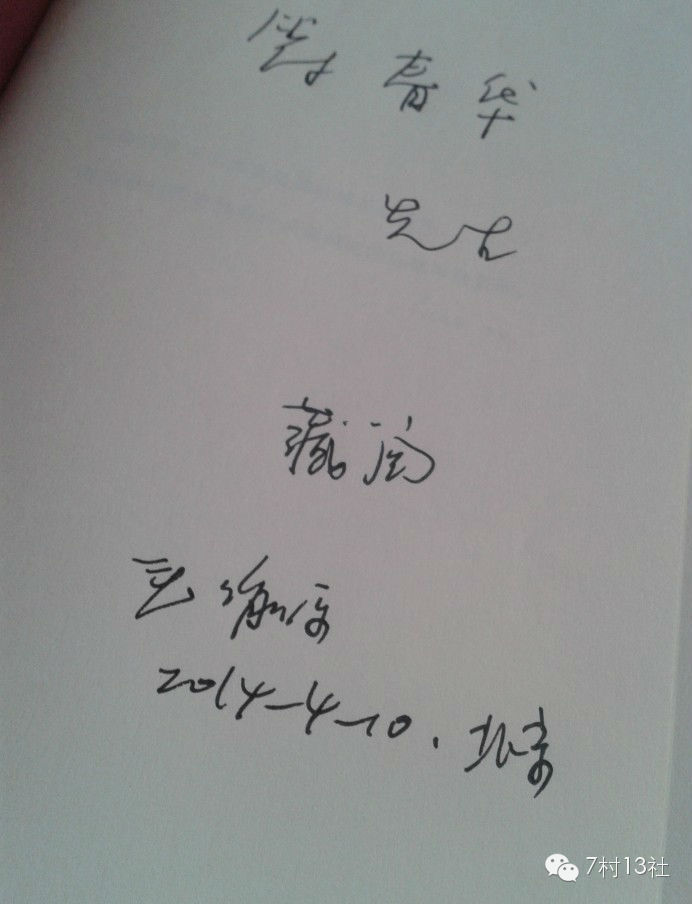 青华
先生
藏阅
2014-4-10.北京
7村13社